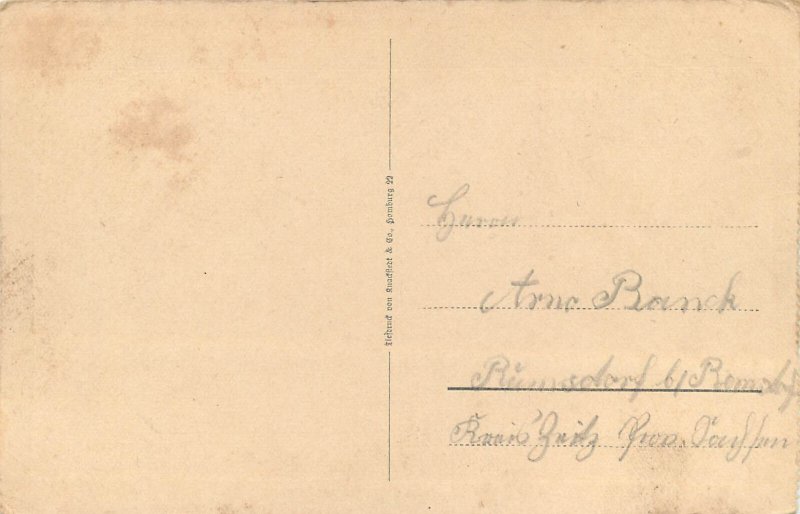 Tiefdruck von Knackstedt & Co., Hamburg 22
Herrn
Arno Ranck
Rumsdorf b/
Kreis Zeitz Prov. Sachsen